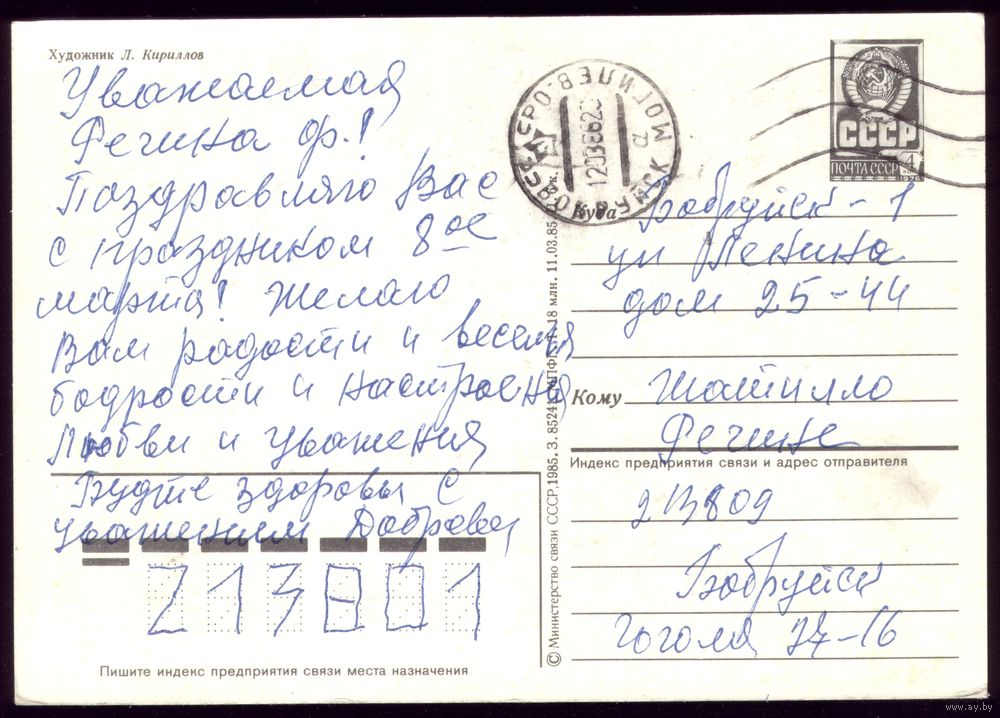 Художник Л. Кириллов
Уважаемая
Регина Ф.!
Поздравляю Вас
с праздником 8ое
марта! Желаю
Вам радости и веселья
бодрости и настроения
Любви и уважения
Будте здоровы с
уважением
213801
Пишите индекс предприятия связи места назначения
СССР
4
ПОЧТА СССР
1976
БОБРУЙСК
МОГИЛЕВ
Куда
Бобруйск-1
ул Ленина
дом 25-44
Кому
Жатилло
Регине
Индекс предприятия связи и адрес отправителя
213809
Бобруйск
Гоголя 74-16
© Министерство связи СССР, 1985. З. 8524 18 млн. 11.03.85
www.ay.by